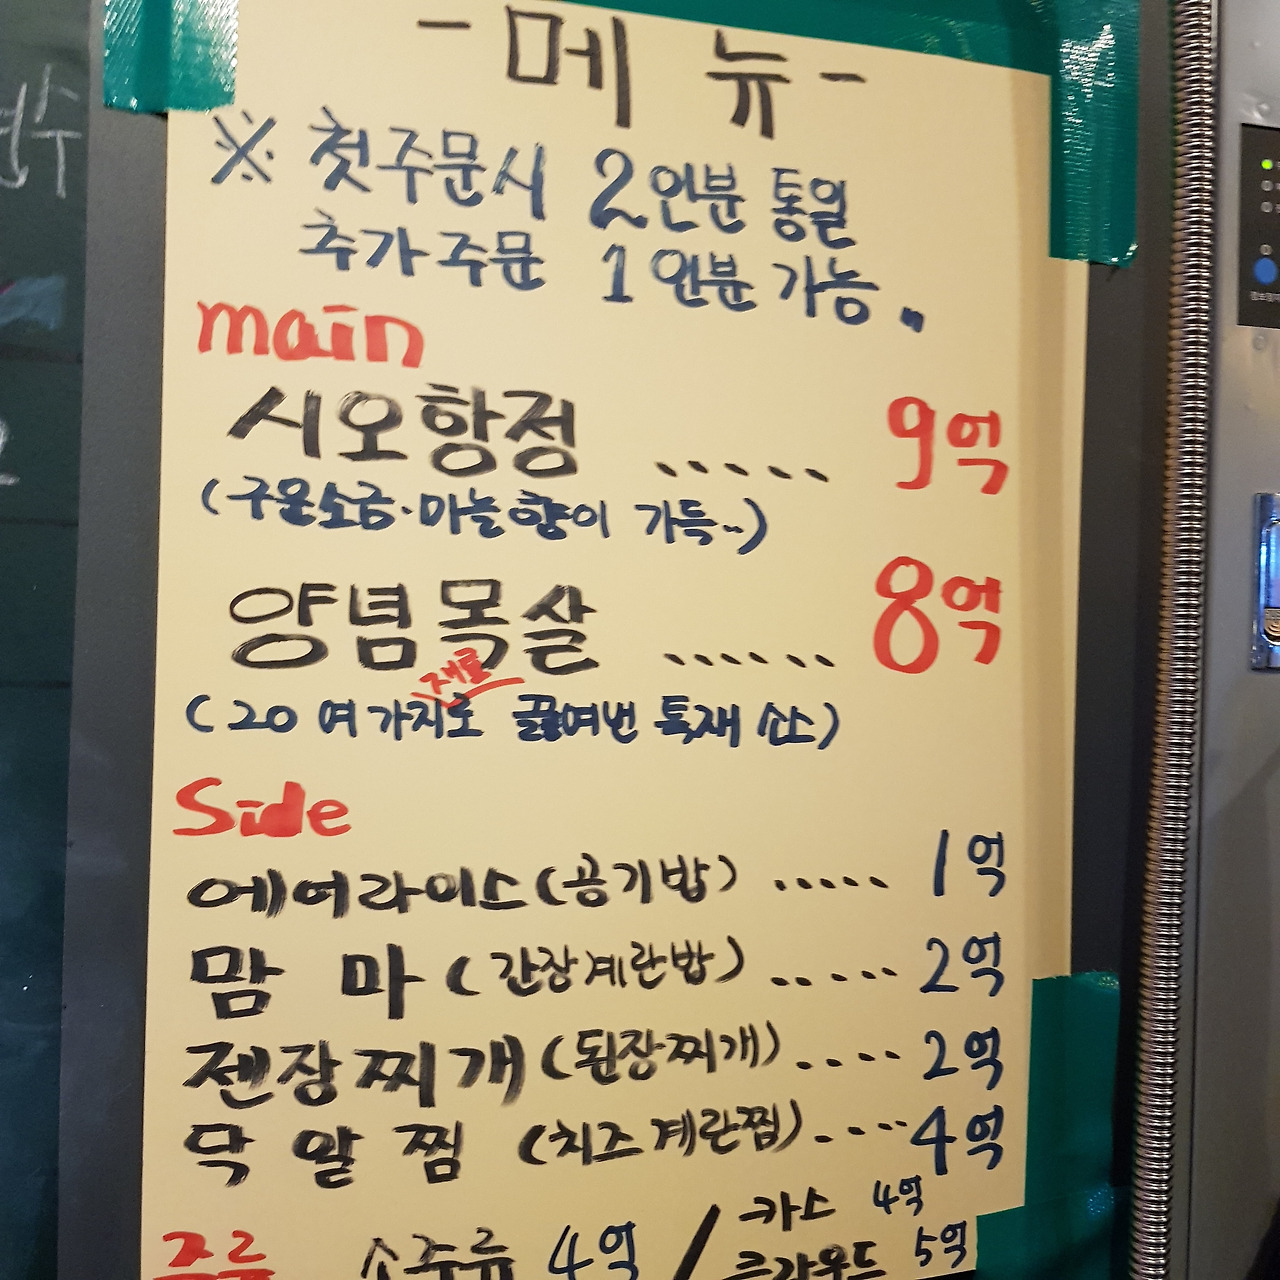 - 메 뉴 -
※ 첫주문시 2인분 통일
추가주문 1인분 가능.
main
시오항정 ..... 9억
(구운소금·마늘향이 가득~)
양념목살 ...... 8억
재료
(20여가지로 끓여낸 특재 소스)
Side
에어라이스(공기밥) ..... 1억
맘 마 (간장계란밥) ..... 2억
젠장찌개 (된장찌개) .... 2억
알 찜 (치즈계란찜) .... 4억
카스 4억
주류 소주류 4억 /
클라우드 5억